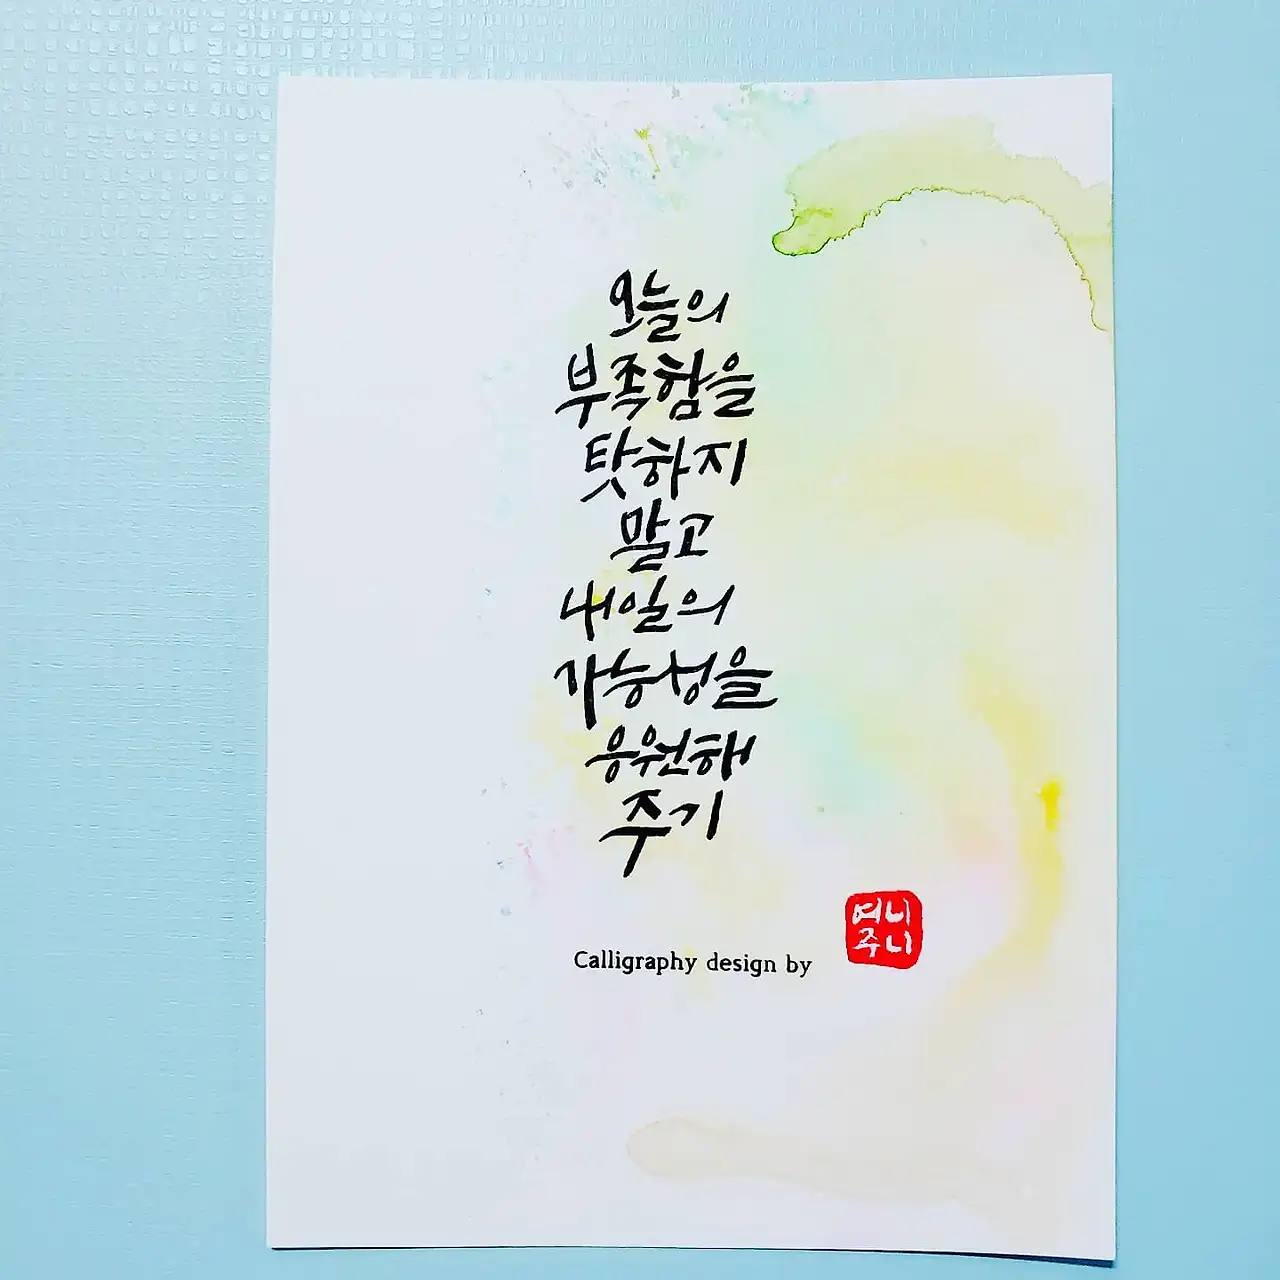 오늘의
부족함을
탓하지
말고
내일의
가능성을
응원해
주기
Calligraphy design by
여니
주니